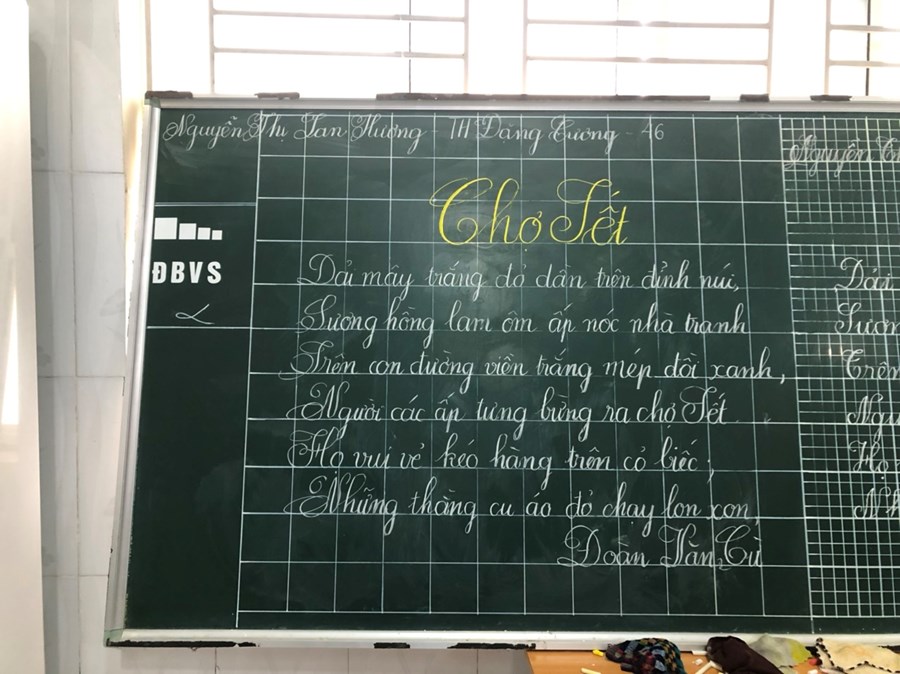 Nguyễn Thị Lan Hương - TH Đặng Cương - 46
Nguyễn
Chợ Tết
ĐBVS
Dải mây trắng đỏ dần trên đỉnh núi,
Sương hồng lam ôm ấp nóc nhà tranh
Trên con đường viền trắng mép đồi xanh,
Người các ấp tưng bừng ra chợ Tết
Họ vui vẻ kéo hàng trên cỏ biếc;
Những thằng cu áo đỏ chạy lon xon,
Đoàn Văn Cừ
Dải
Sươn
Trên
Ngư
Họ
Nh